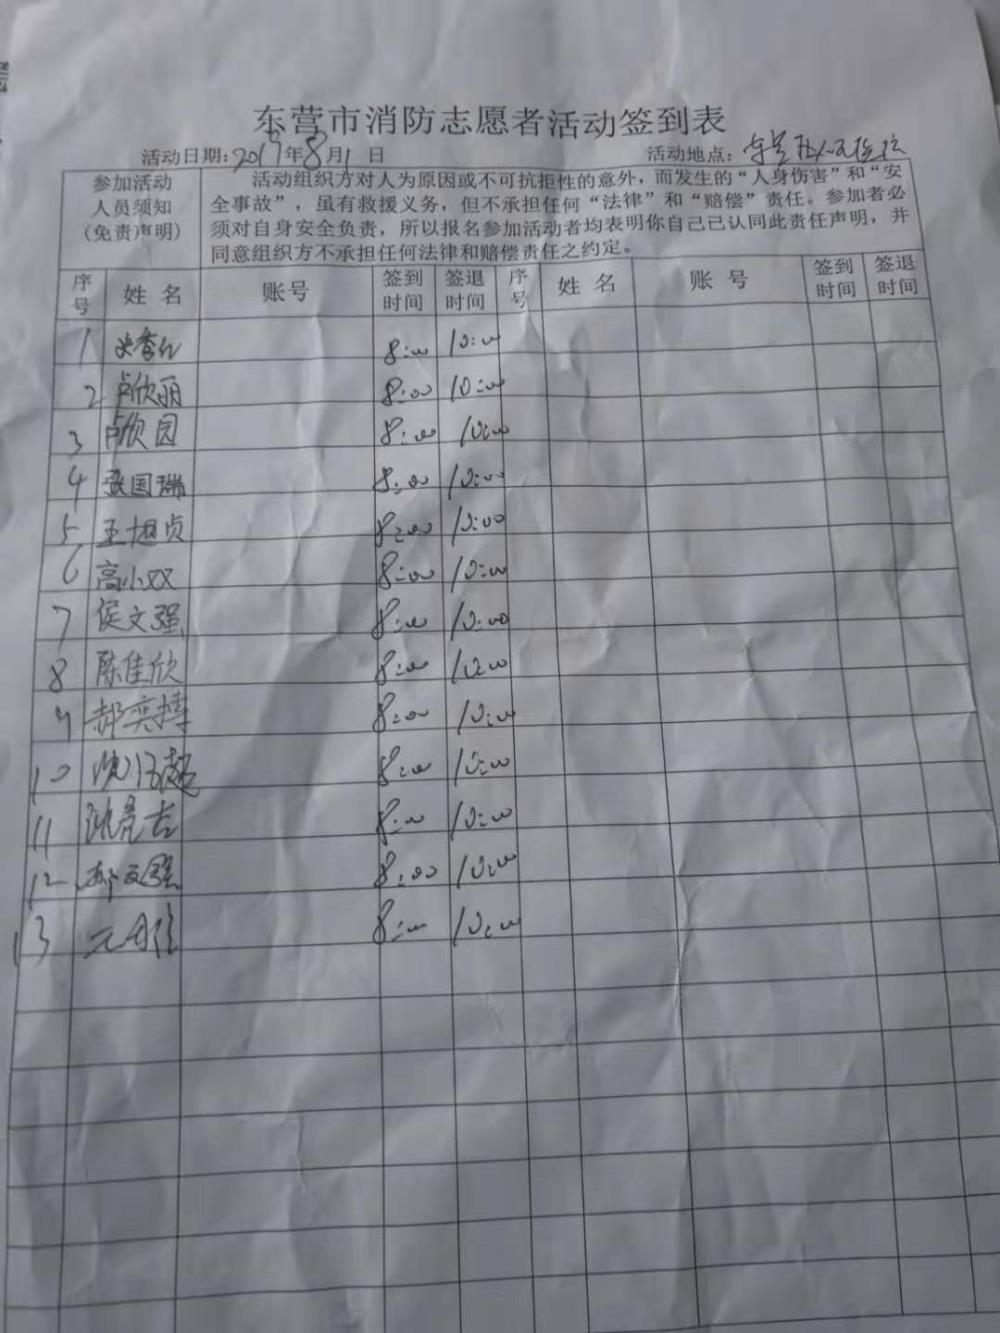 东营市消防志愿者活动签到表
活动日期:2019年8月1日 活动地点:
参加活动人员须知(免责声明)
活动组织方对人为原因或不可抗拒性的意外，而发生的“人身伤害”和“安
全事故”，虽有救援义务，但不承担任何“法律”和“赔偿”责任。参加者必
须对自身安全负责，所以报名参加活动者均表明你自己已认同此责任声明，并
同意组织方不承担任何法律和赔偿责任之约定。
序号 姓名 账号 签到时间 签退时间 序号 姓名 账号 签到时间 签退时间
1 8:00 10:00
2 卢欣丽 8:00 10:00
3 卢欣园 8:00 10:00
4 张国瑞 8:00 10:00
5 王旭贞 8:00 10:00
6 高小双 8:00 10:00
7 侯文强 8:00 10:00
8 陈佳欣 8:00 10:00
9 郝奕搏 8:00 10:00
10 8:00 10:00
11 8:00 10:00
12 8:00 10:00
13 8:00 10:00